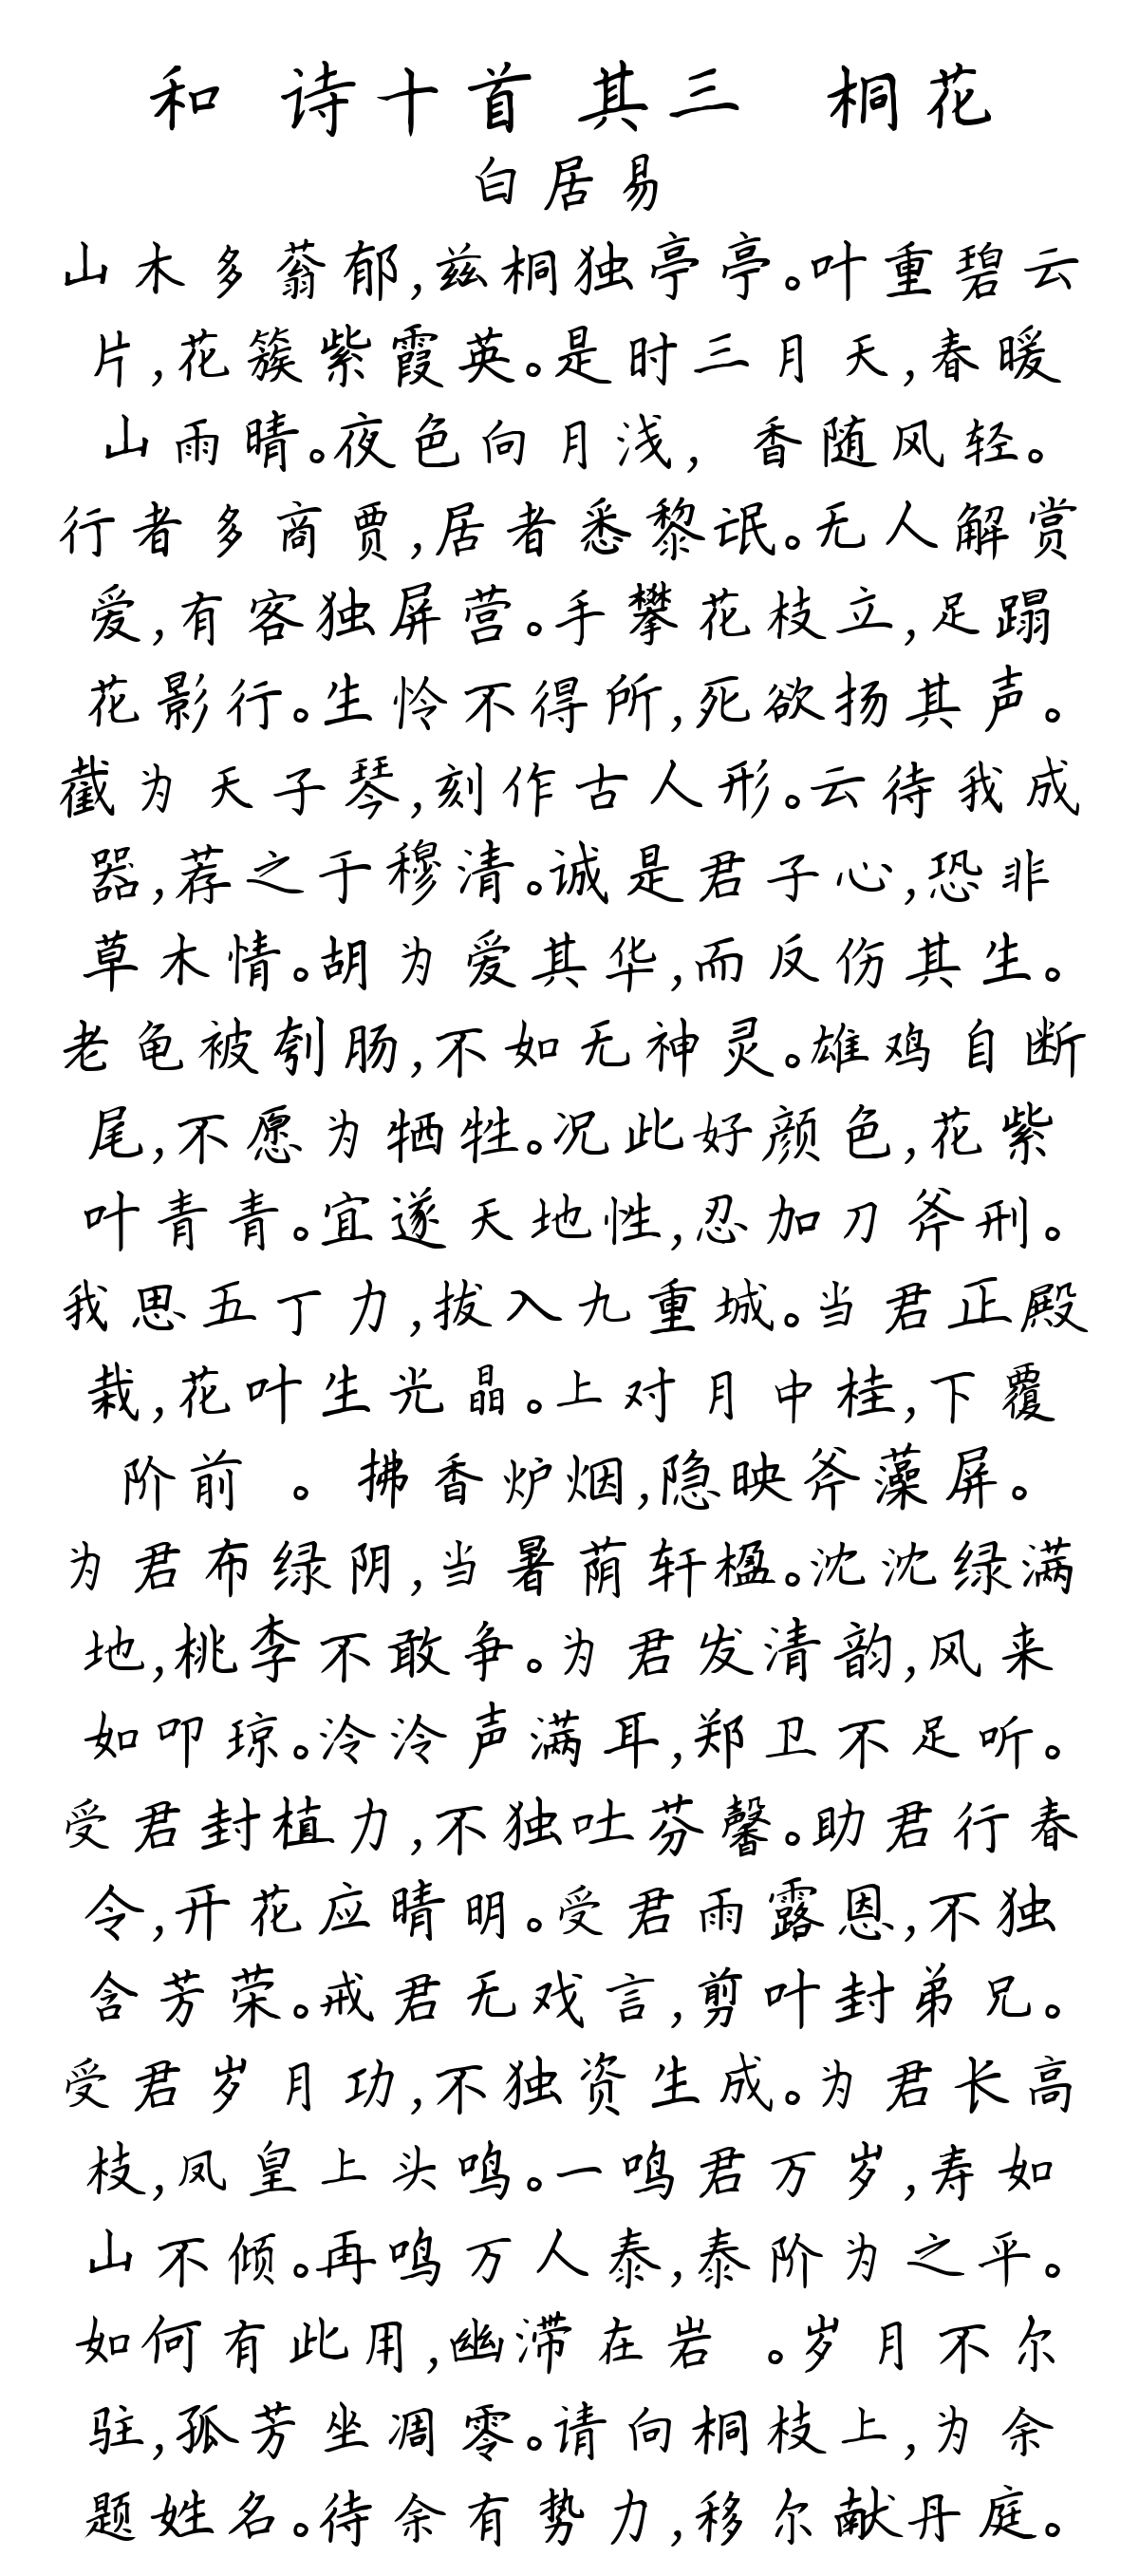 和 诗十首 其三 桐花
白居易
山木多蓊郁,兹桐独亭亭。叶重碧云
片,花簇紫霞英。是时三月天,春暖
山雨晴。夜色向月浅, 香随风轻。
行者多商贾,居者悉黎氓。无人解赏
爱,有客独屏营。手攀花枝立,足蹋
花影行。生怜不得所,死欲扬其声。
截为天子琴,刻作古人形。云待我成
器,荐之于穆清。诚是君子心,恐非
草木情。胡为爱其华,而反伤其生。
老龟被刳肠,不如无神灵。雄鸡自断
尾,不愿为牺牲。况此好颜色,花紫
叶青青。宜遂天地性,忍加刀斧刑。
我思五丁力,拔入九重城。当君正殿
栽,花叶生光晶。上对月中桂,下覆
阶前 。拂香炉烟,隐映斧藻屏。
为君布绿阴,当暑荫轩楹。沈沈绿满
地,桃李不敢争。为君发清韵,风来
如叩琼。泠泠声满耳,郑卫不足听。
受君封植力,不独吐芬馨。助君行春
令,开花应晴明。受君雨露恩,不独
含芳荣。戒君无戏言,剪叶封弟兄。
受君岁月功,不独资生成。为君长高
枝,凤皇上头鸣。一鸣君万岁,寿如
山不倾。再鸣万人泰,泰阶为之平。
如何有此用,幽滞在岩 。岁月不尔
驻,孤芳坐凋零。请向桐枝上,为余
题姓名。待余有势力,移尔献丹庭。